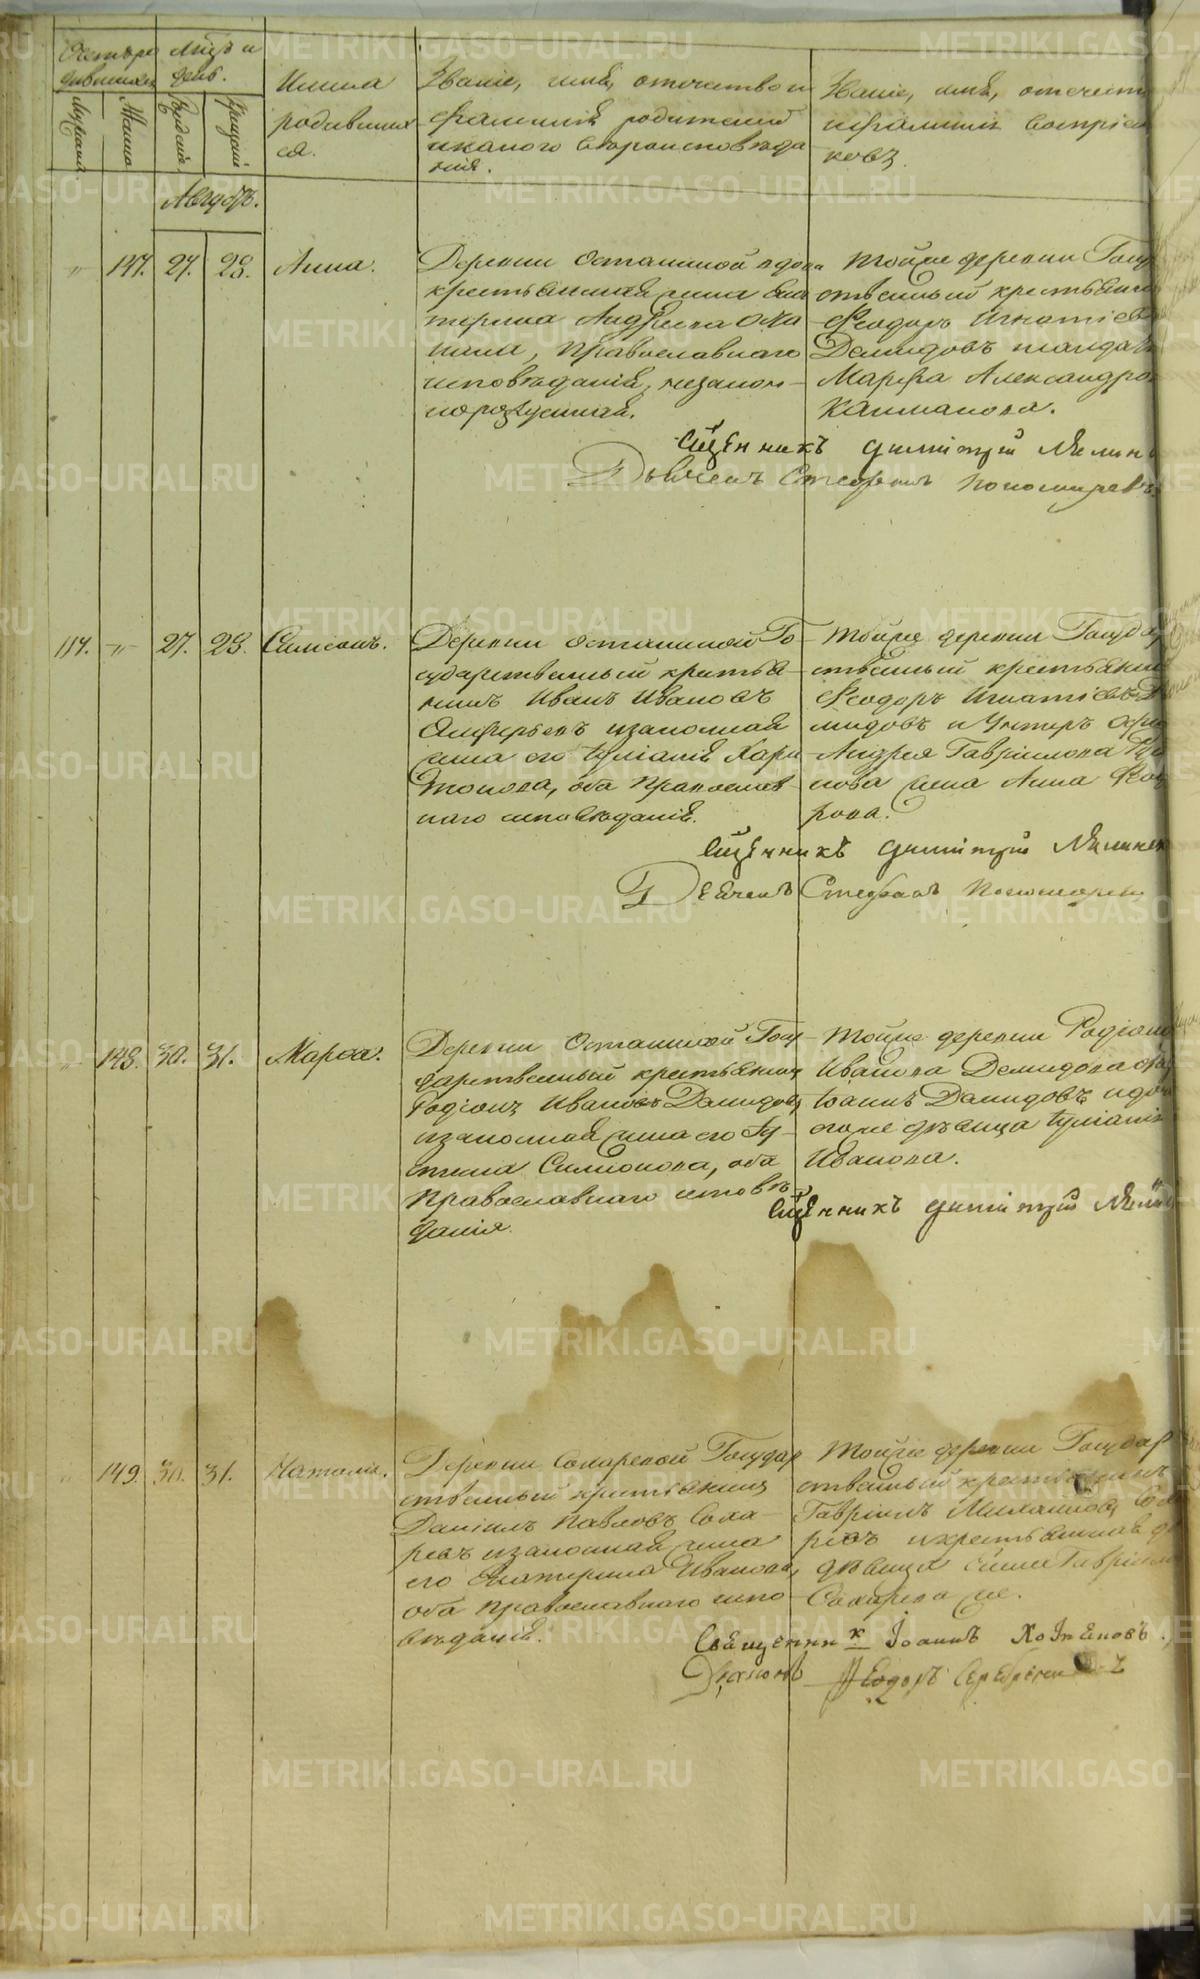 Счетъ ро
дившихся
Мцъ и
день.
Мужеска
Женска
Рожденія
Крещенія
Имена
родивших
ся.
Званіе, имя, отчество и
фамилія родителей
и какого вѣроисповѣда
нія.
Званіе, имя, отчеств
и фамилія воспріем
ковъ.
Августъ.
" 147. 27. 28. Анна.
Деревни Останиной вдова
крестьянская жена Ека
терина Андреева
православнаго
исповѣданія, незакон-
норожденная.
Тойже деревни Госу
ственный крестьянин
Ѳеодоръ Игнатіев
Демидовъ и
Марѳа Александро
Калмакова.
Сщенникъ Димітрій
Дьячекъ Стефанъ Пономаревъ
114. " 27. 28. Симеонъ.
Деревни Останиной Го
сударственный крестья-
нинъ Иванъ Ивановъ
Алферьевъ и законная
жена его Іуліанія Хари
тонова, оба Православ
наго исповѣданія.
Тойже деревни Государ
ственный крестьянин
Ѳеодоръ Игнатіевъ Де
мидовъ и Унтеръ Офи
Андрея Гавріилова
жена Анна Ѳеод
рова.
Сщенникъ Димітрій
Дьячекъ Стефанъ Пономарев
" 148. 30. 31. Марѳа.
Деревни Останиной Госу
дарственный крестьянинъ
Родіонъ Ивановъ Демидовъ
и законная жена его
Симеонова, оба
Православнаго исповѣ
данія.
Тойже деревни Родіона
Иванова Демидова
Іоаннъ Демидовъ и доч
его же дѣвица Іуліанія
Иванова.
Сщенникъ Димітрій
" 149. 30. 31. Наталія.
Деревни Сокаревой Государ
ственный крестьянинъ
Даніилъ Павловъ Сока-
ревъ и законная жена
его Екатерина Иванова,
оба православнаго испо
вѣданія.
Тойже деревни Государ
ственный крестьянинъ
Гавріилъ Михаиловъ Сока
ревъ и крестьянская
дѣвица Гавріилова
Сокарева же.
Священникъ Іоаннъ
Діаконъ Ѳеодоръ
METRIKI.GASO-URAL.RU